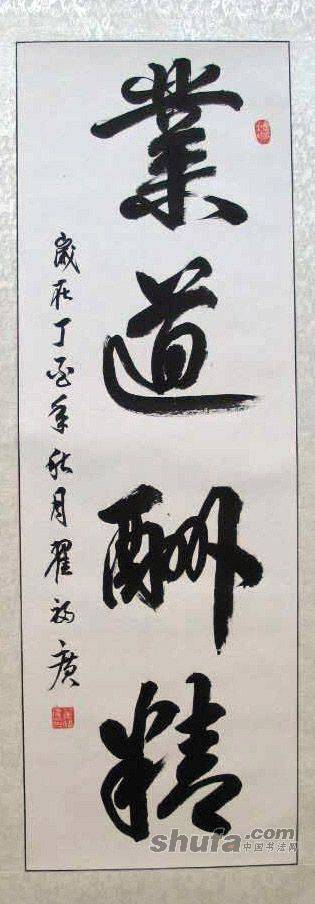 業道酬精
歲在丁亥年秋月翟福廣
shufa.com
中国书法网